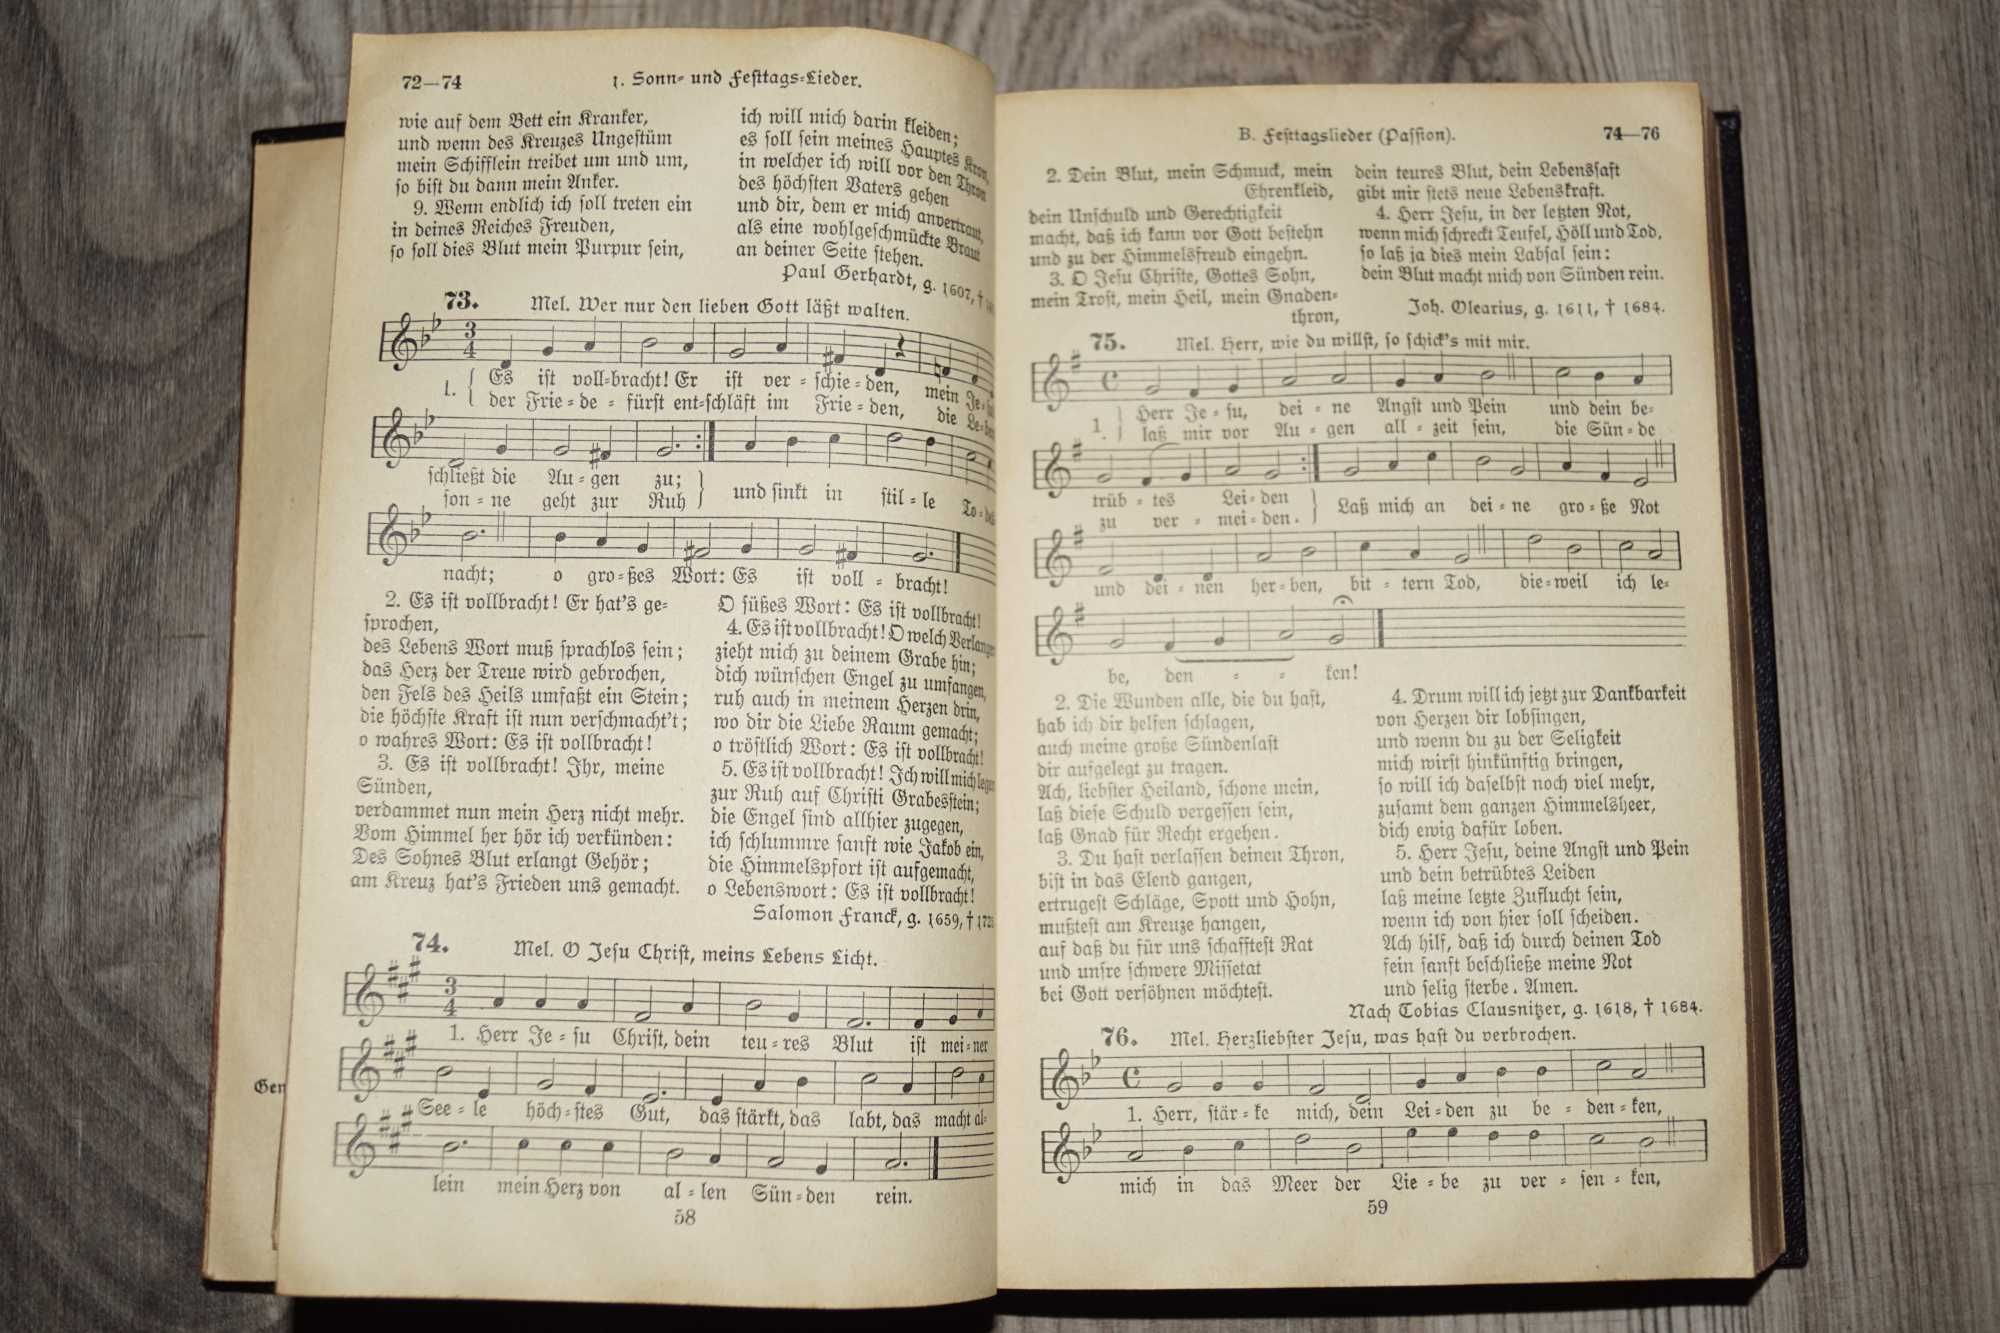 72—74
1. Sonn- und Festtags-Lieder.
wie auf dem Bett ein Kranker,
und wenn des Kreuzes Ungestüm
mein Schifflein treibet um und um,
so bist du dann mein Anker.
9. Wenn endlich ich soll treten ein
in deines Reiches Freuden,
so soll dies Blut mein Purpur sein,
ich will mich darin kleiden;
es soll sein meines Hauptes Kron,
in welcher ich will vor den Thron
des höchsten Vaters gehen
und dir, dem er mich anvertraut,
als eine wohlgeschmückte Braut
an deiner Seite stehen.
Paul Gerhardt, g. 1607, †
73.
Mel. Wer nur den lieben Gott läßt walten.
1. Es ist voll-bracht! Er ist ver-schie-den, mein Je-
der Frie-de-fürst ent-schläft im Frie-den, die Le-
schließt die Au-gen zu; und sinkt in stil-le To-
son-ne geht zur Ruh
nacht; o gro-ßes Wort: Es ist voll-bracht!
2. Es ist vollbracht! Er hat's ge-
sprochen,
des Lebens Wort muß sprachlos sein;
das Herz der Treue wird gebrochen,
den Fels des Heils umfaßt ein Stein;
die höchste Kraft ist nun verschmacht't;
o wahres Wort: Es ist vollbracht!
3. Es ist vollbracht! Ihr, meine
Sünden,
verdammet nun mein Herz nicht mehr.
Vom Himmel her hör ich verkünden:
Des Sohnes Blut erlangt Gehör;
am Kreuz hat's Frieden uns gemacht.
O süßes Wort: Es ist vollbracht!
4. Es ist vollbracht! O welch Verlangen
zieht mich zu deinem Grabe hin;
dich wünschen Engel zu umfangen,
ruh auch in meinem Herzen drin,
wo dir die Liebe Raum gemacht;
o tröstlich Wort: Es ist vollbracht!
5. Es ist vollbracht! Ich will mich legen
zur Ruh auf Christi Grabesstein;
die Engel sind allhier zugegen,
ich schlummre sanft wie Jakob ein,
die Himmelspfort ist aufgemacht,
o Lebenswort: Es ist vollbracht!
Salomon Franck, g. 1659, † 1725
74.
Mel. O Jesu Christ, meins Lebens Licht.
1. Herr Je-su Christ, dein teu-res Blut ist mei-ner
See-le höch-stes Gut, das stärkt, das labt, das macht al-
lein mein Herz von al-len Sün-den rein.
58
Gen
B. Festtagslieder (Passion).
74—76
2. Dein Blut, mein Schmuck, mein
Ehrenkleid,
dein Unschuld und Gerechtigkeit
macht, daß ich kann vor Gott bestehn
und zu der Himmelsfreud eingehn.
3. O Jesu Christe, Gottes Sohn,
mein Trost, mein Heil, mein Gnaden-
thron,
dein teures Blut, dein Lebenssaft
gibt mir stets neue Lebenskraft.
4. Herr Jesu, in der letzten Not,
wenn mich schreckt Teufel, Höll und Tod,
so laß ja dies mein Labsal sein:
dein Blut macht mich von Sünden rein.
Joh. Olearius, g. 1611, † 1684.
75.
Mel. Herr, wie du willst, so schick's mit mir.
1. Herr Je-su, dei-ne Angst und Pein und dein be-
laß mir vor Au-gen all-zeit sein, die Sün-de
trüb-tes Lei-den Laß mich an dei-ne gro-ße Not
zu ver-mei-den.
und dei-nen her-ben, bit-tern Tod, die-weil ich le-
be, den - - ken!
2. Die Wunden alle, die du hast,
hab ich dir helfen schlagen,
auch meine große Sündenlast
dir aufgelegt zu tragen.
Ach, liebster Heiland, schone mein,
laß diese Schuld vergessen sein,
laß Gnad für Recht ergehen.
3. Du hast verlassen deinen Thron,
bist in das Elend gangen,
ertrugest Schläge, Spott und Hohn,
mußtest am Kreuze hangen,
auf daß du für uns schafftest Rat
und unsre schwere Missetat
bei Gott versöhnen möchtest.
4. Drum will ich jetzt zur Dankbarkeit
von Herzen dir lobsingen,
und wenn du zu der Seligkeit
mich wirst hinkünftig bringen,
so will ich daselbst noch viel mehr,
zusamt dem ganzen Himmelsheer,
dich ewig dafür loben.
5. Herr Jesu, deine Angst und Pein
und dein betrübtes Leiden
laß meine letzte Zuflucht sein,
wenn ich von hier soll scheiden.
Ach hilf, daß ich durch deinen Tod
fein sanft beschließe meine Not
und selig sterbe. Amen.
Nach Tobias Clausnitzer, g. 1618, † 1684.
76.
Mel. Herzliebster Jesu, was hast du verbrochen.
1. Herr, stär-ke mich, dein Lei-den zu be-den-ken,
mich in das Meer der Lie-be zu ver-sen-ken,
59